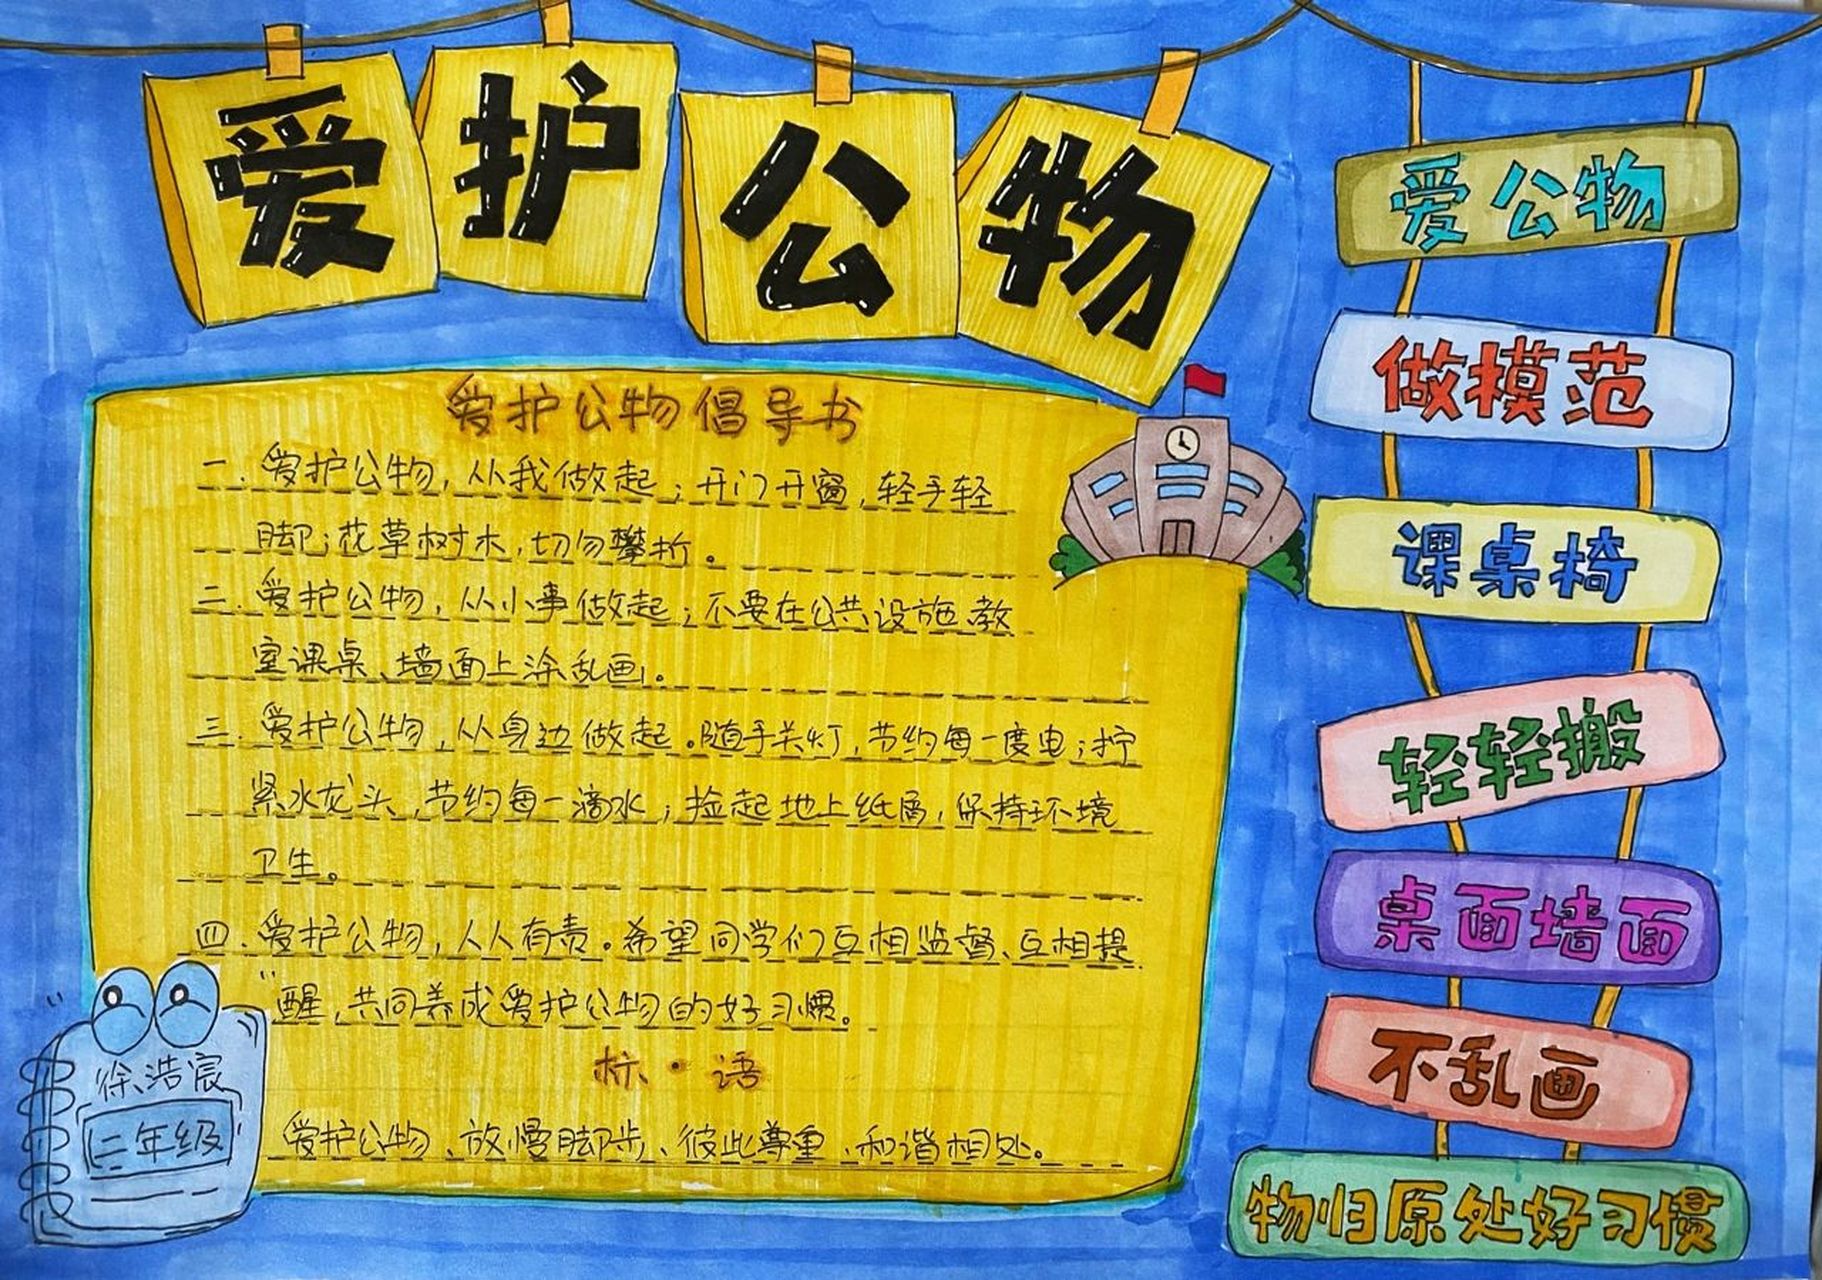 爱护公物
爱护公物倡导书
一.爱护公物,从我做起;开门开窗,轻手轻
脚;花草树木,切勿攀折。
二.爱护公物,从小事做起;不要在公共设施、教
室课桌、墙面上涂乱画。
三.爱护公物,从身边做起。随手关灯,节约每一度电;拧
紧水龙头,节约每一滴水;捡起地上纸屑,保持环境
卫生。
四.爱护公物,人人有责。希望同学们互相监督、互相提
醒,共同养成爱护公物的好习惯。
标·语
爱护公物、放慢脚步、彼此尊重、和谐相处。
徐浩宸
二年级
爱公物
做模范
课桌椅
轻轻搬
桌面墙面
不乱画
物归原处好习惯